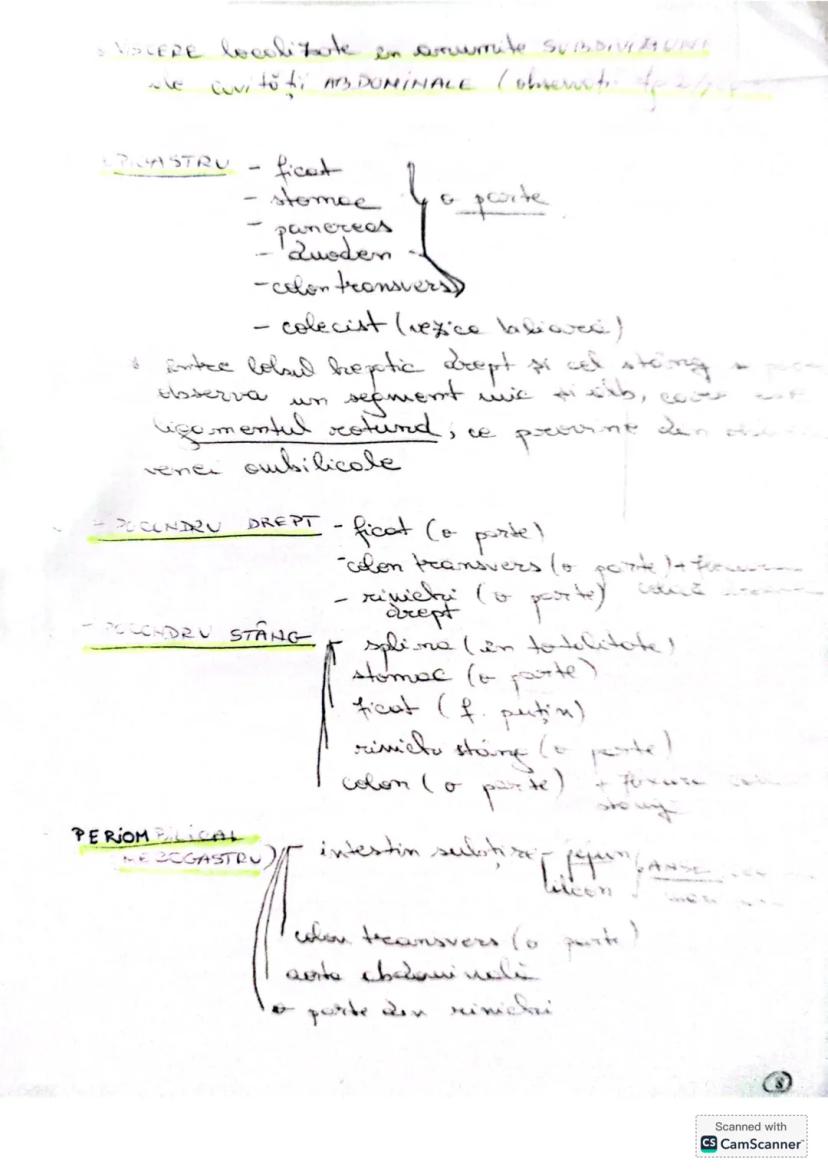 VISCERE localizate în anumite SUBDIVIZIUNI
ale cavității ABDOMINALE (observați
EPIGASTRU - ficat
- stomac
o parte
- pancreas
- duoden
- colon transvers
- colecist (vezica biliară)
între lobul hepatic drept și cel stâng
observa un segment mic și alb, care
ligamentul rotund, ce provine din
venei ombilicale
- POCONDRU DREPT - ficat (o parte)
- colon transvers (o parte) +
- rinichi (o parte)
drept
- POCONDRU STÂNG
splina (în totalitate)
stomac (o parte)
ficat (f. puțin)
rinichi stâng (o parte)
colon (o parte) + flexura
stângă
PERIOMBILICAL
(MEZOGASTRU)
intestin subțire - jejun ANSE
ileon
colon transvers (o parte)
aorta abdominală
o parte din rinichi
8
Scanned with
CS CamScanner